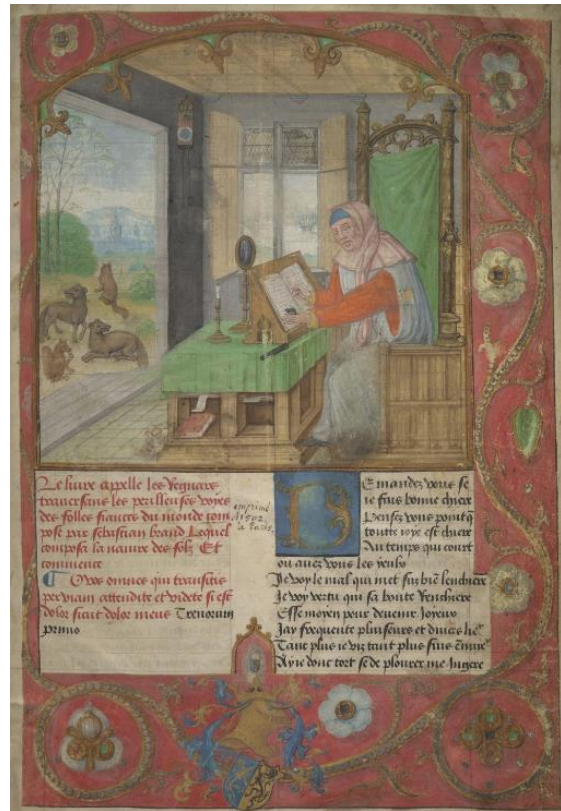 Le liure appelle les Regnars
trauersans les perilleuses voyes
des folles fiances du monde com
pose par sebastian brand Lequel
composa la nauire des folz Et
commence
O vos omnes qui transitis
per viam attendite et videte si est
dolor sicut dolor meus Trenorum
primo
imprimé
1502
a Paris.
Demandez vous se
ie fais bonne chiere
Pensez vous point q
toute ioye est chiere
Au temps qui court
ou auez vous les yeulx
Je voy le mal qui met sur bie lenchiere
Je voy vertu qui sa bonte
Esse moyen pour deuenir Joyeux
Jay frequente pluiseurs et diuers lie
Tant plus ie viz tant plus suis
Ay ie donc tort se de plourer me Ingere